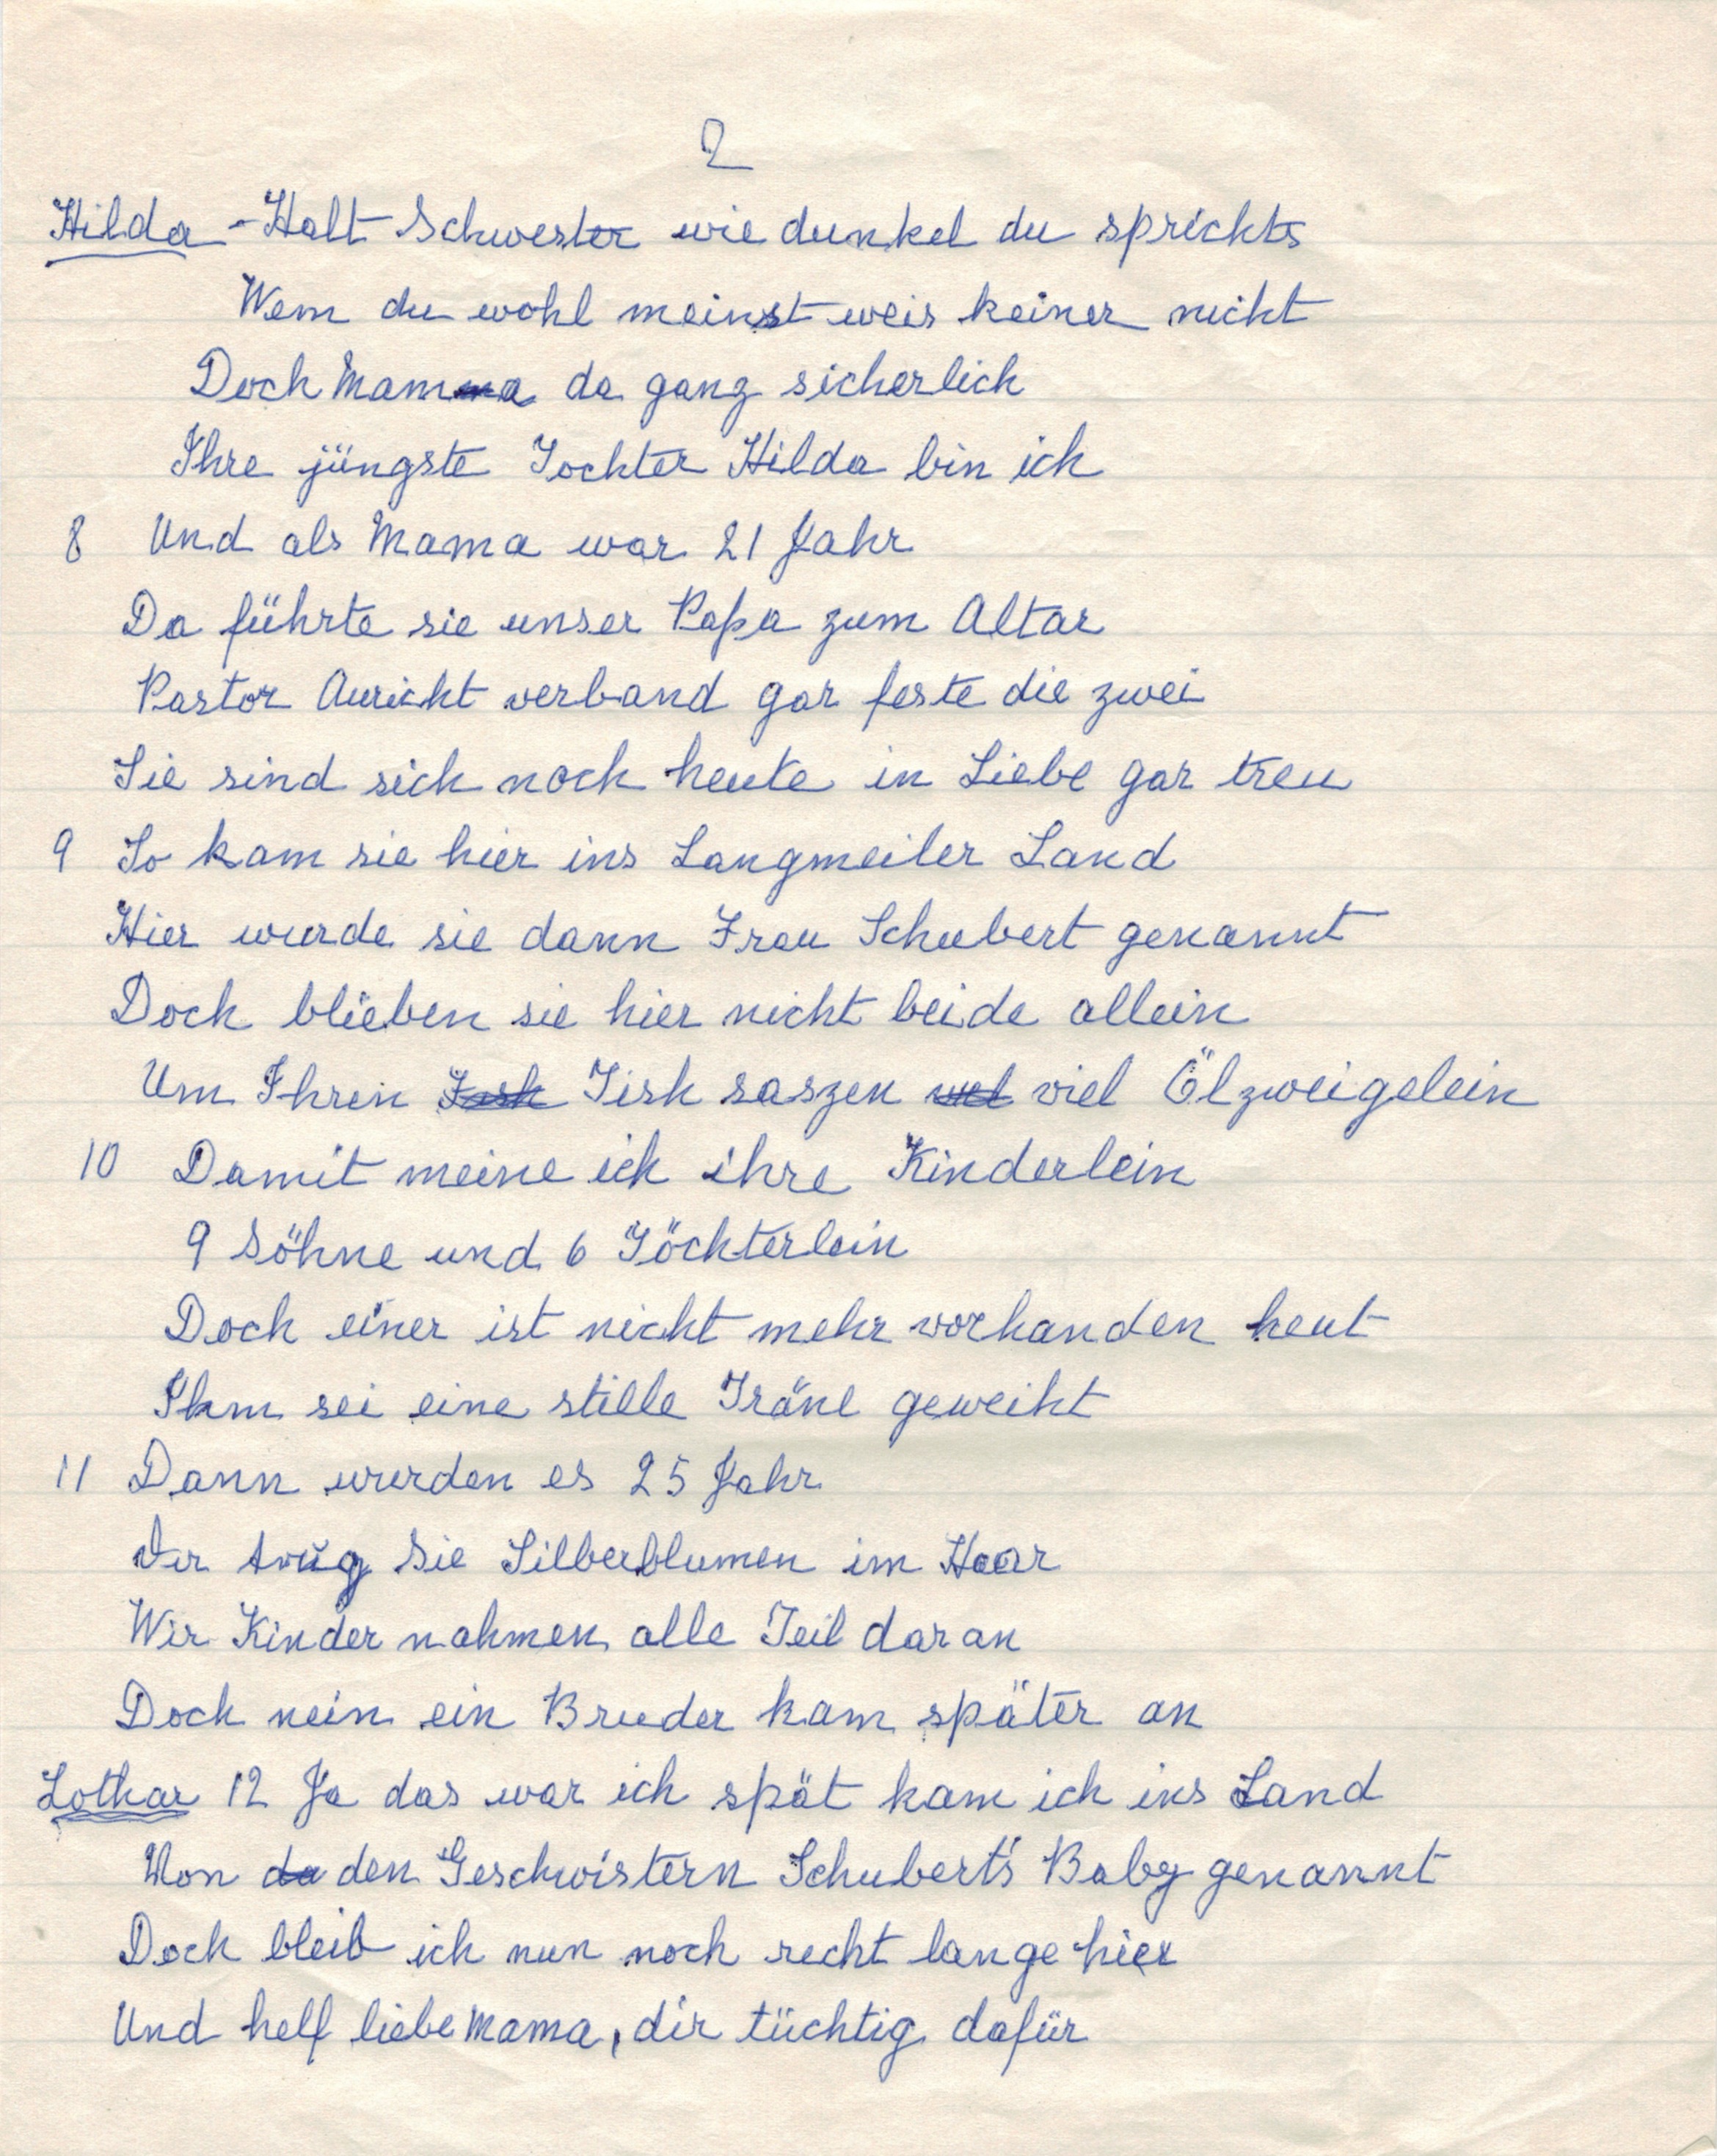 2
Hilda - Halt Schwester wie dunkel du sprichts
Wem du wohl meinst weis keiner nicht
Doch Mama da ganz sicherlich
Ihre jüngste Tochter Hilda bin ich
8 Und als Mama war 21 Jahr
Da führte sie unser Papa zum Altar
Pastor Auricht verband gar feste die zwei
Sie sind sich noch heute in Liebe gar treu
9 So kam sie hier ins Langmeiler Land
Hier wurde sie dann Frau Schubert genannt
Doch blieben sie hier nicht beide allein
Um Ihren Tish saszen viel Ölzweigelein
10 Damit meine ich ihre Kinderlein
9 Söhne und 6 Töchterlein
Doch einer ist nicht mehr vorhanden heut
Ihm sei eine stille Träne geweiht
11 Dann wurden es 25 Jahr
Da trug Sie Silberblumen im Haar
Wir Kinder nahmen alle Teil daran
Doch nein ein Bruder kam später an
Lothar 12 Ja das war ich spät kam ich ins Land
Von den Geschwistern Schubert's Baby genannt
Doch bleib ich nun noch recht lange hier
Und helf liebe Mama, dir tüchtig dafür